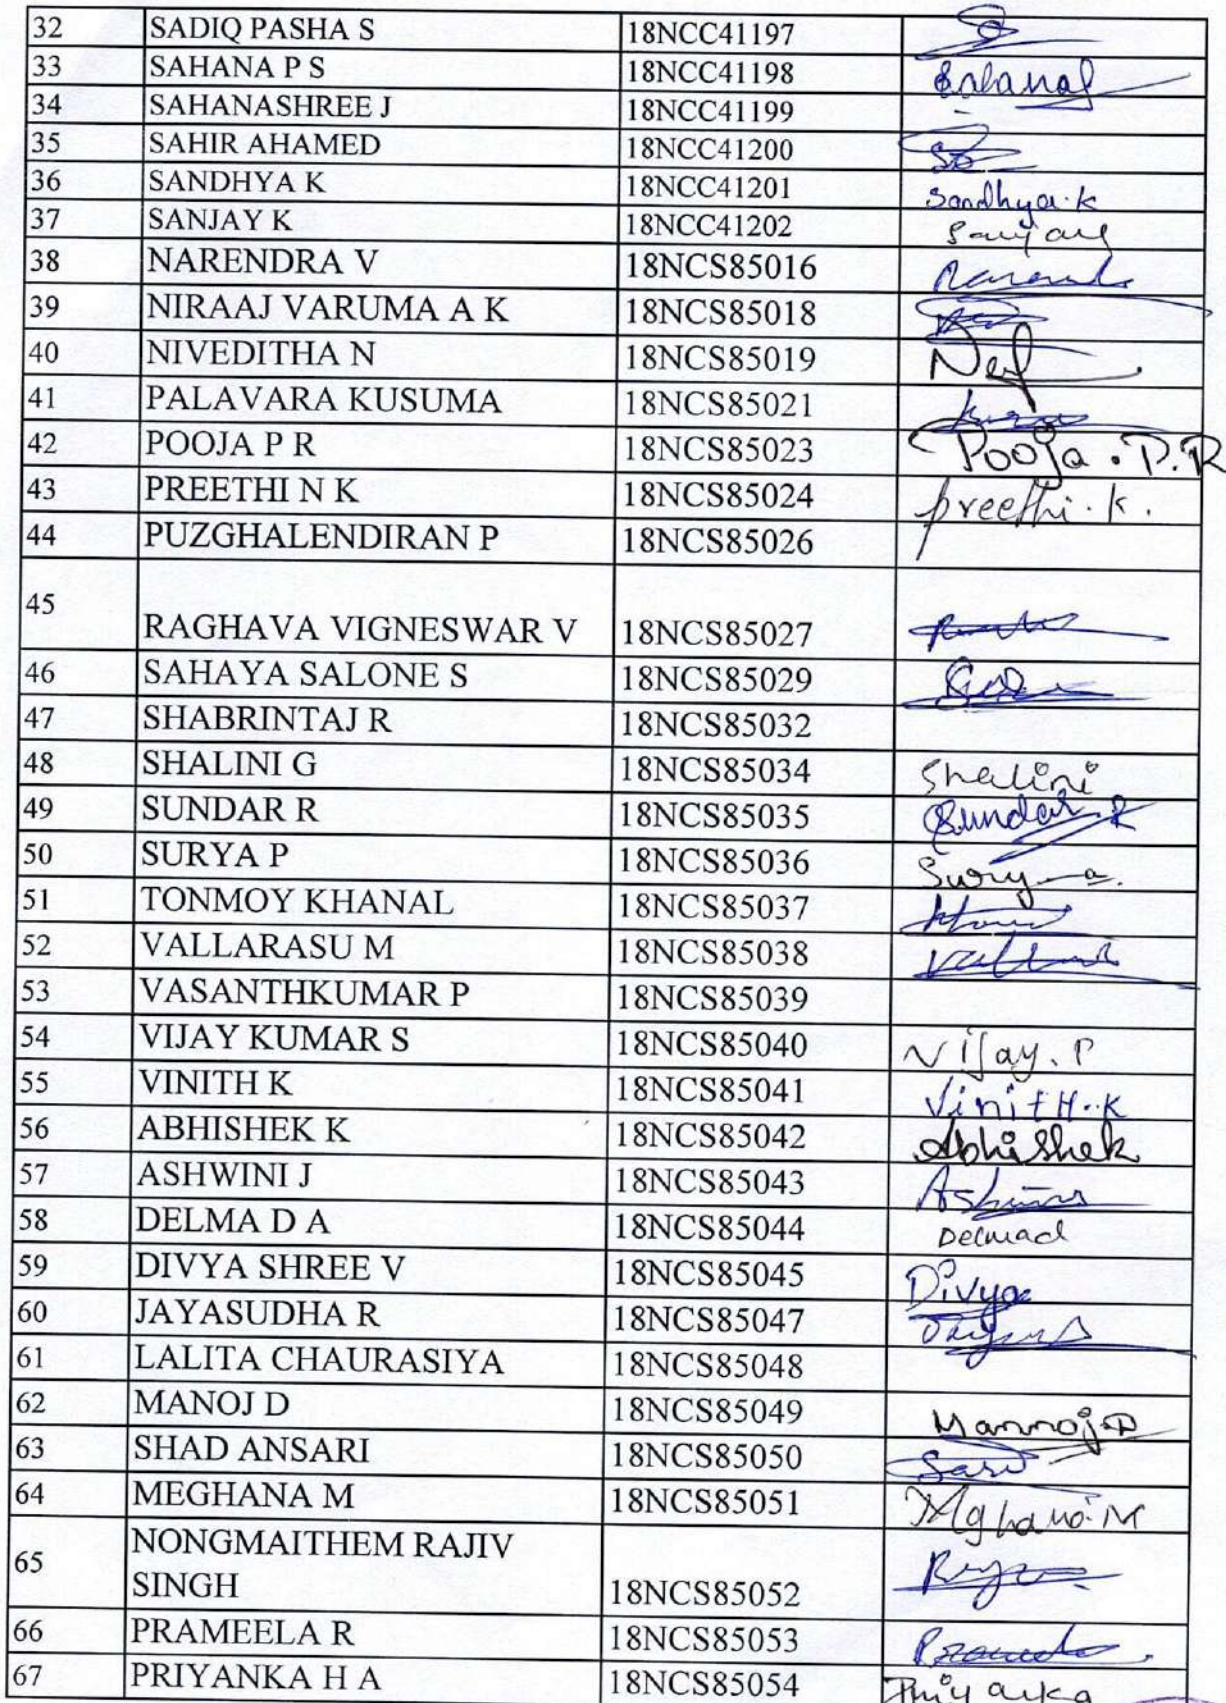 32 SADIQ PASHA S 18NCC41197
33 SAHANA P S 18NCC41198
34 SAHANASHREE J 18NCC41199
35 SAHIR AHAMED 18NCC41200
36 SANDHYA K 18NCC41201 Sandhya.k
37 SANJAY K 18NCC41202 Sanjay
38 NARENDRA V 18NCS85016
39 NIRAAJ VARUMA A K 18NCS85018
40 NIVEDITHA N 18NCS85019
41 PALAVARA KUSUMA 18NCS85021
42 POOJA P R 18NCS85023 Pooja.P.R
43 PREETHI N K 18NCS85024 preethi.k.
44 PUZGHALENDIRAN P 18NCS85026
45 RAGHAVA VIGNESWAR V 18NCS85027
46 SAHAYA SALONE S 18NCS85029
47 SHABRINTAJ R 18NCS85032
48 SHALINI G 18NCS85034 Shalini
49 SUNDAR R 18NCS85035 Sundar.R
50 SURYA P 18NCS85036 Surya.
51 TONMOY KHANAL 18NCS85037
52 VALLARASU M 18NCS85038
53 VASANTHKUMAR P 18NCS85039
54 VIJAY KUMAR S 18NCS85040 Vijay.P
55 VINITH K 18NCS85041 VinitH.K
56 ABHISHEK K 18NCS85042 Abhishek
57 ASHWINI J 18NCS85043
58 DELMA D A 18NCS85044
59 DIVYA SHREE V 18NCS85045 Divya
60 JAYASUDHA R 18NCS85047
61 LALITA CHAURASIYA 18NCS85048
62 MANOJ D 18NCS85049
63 SHAD ANSARI 18NCS85050
64 MEGHANA M 18NCS85051
65 NONGMAITHEM RAJIV
SINGH 18NCS85052
66 PRAMEELA R 18NCS85053
67 PRIYANKA H A 18NCS85054 Priyanka